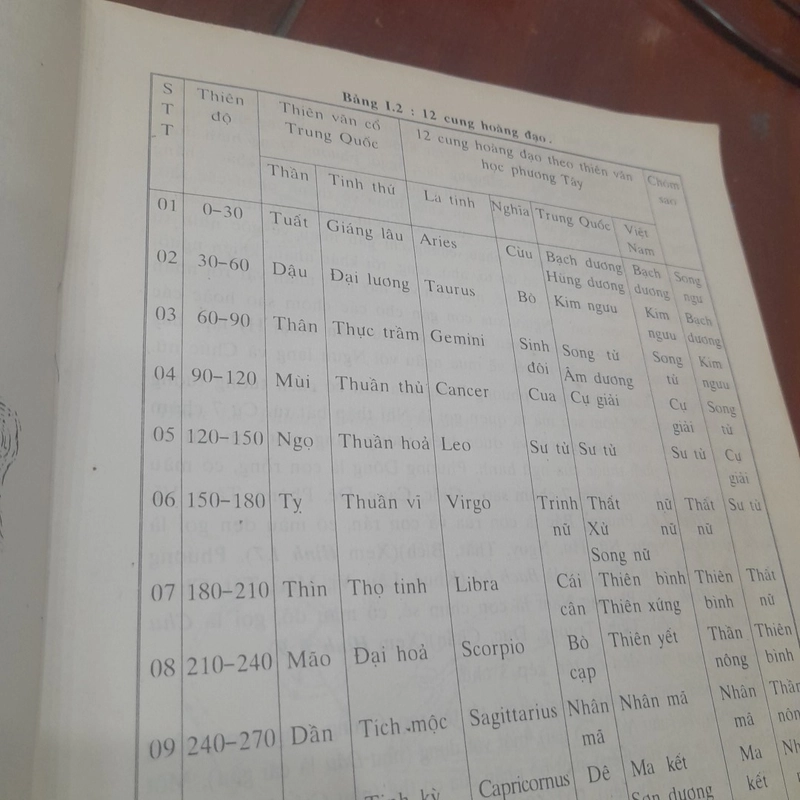 Bảng I.2 : 12 cung hoàng đạo.
STT Thiên độ Thiên văn cổ Trung Quốc 12 cung hoàng đạo theo thiên văn học phương Tây Chòm sao
Thần Tinh thứ La tinh Nghĩa Trung Quốc Việt Nam
01 0-30 Tuất Giáng lâu Aries Cừu Bạch dương Hùng dương Bạch dương Song ngư
02 30-60 Dậu Đại lương Taurus Bò Kim ngưu Kim ngưu Bạch dương
03 60-90 Thân Thực trầm Gemini Sinh đôi Song tử Âm dương Song tử Kim ngưu
04 90-120 Mùi Thuần thủ Cancer Cua Cự giải Cự giải Song tử
05 120-150 Ngọ Thuần hoả Leo Sư tử Sư tử Sư tử Cự giải
06 150-180 Tỵ Thuần vĩ Virgo Trinh nữ Thất nữ Xử nữ Song nữ Thất nữ Sư tử
07 180-210 Thìn Thọ tinh Libra Cái cân Thiên bình Thiên xứng Thiên bình Thất nữ
08 210-240 Mão Đại hoả Scorpio Bò cạp Thiên yết Thần nông Thiên bình
09 240-270 Dần Tích mộc Sagittarius Nhân mã Nhân mã Nhân mã Thần
Capricornus Dê Ma kết Sơn dương Ma kết